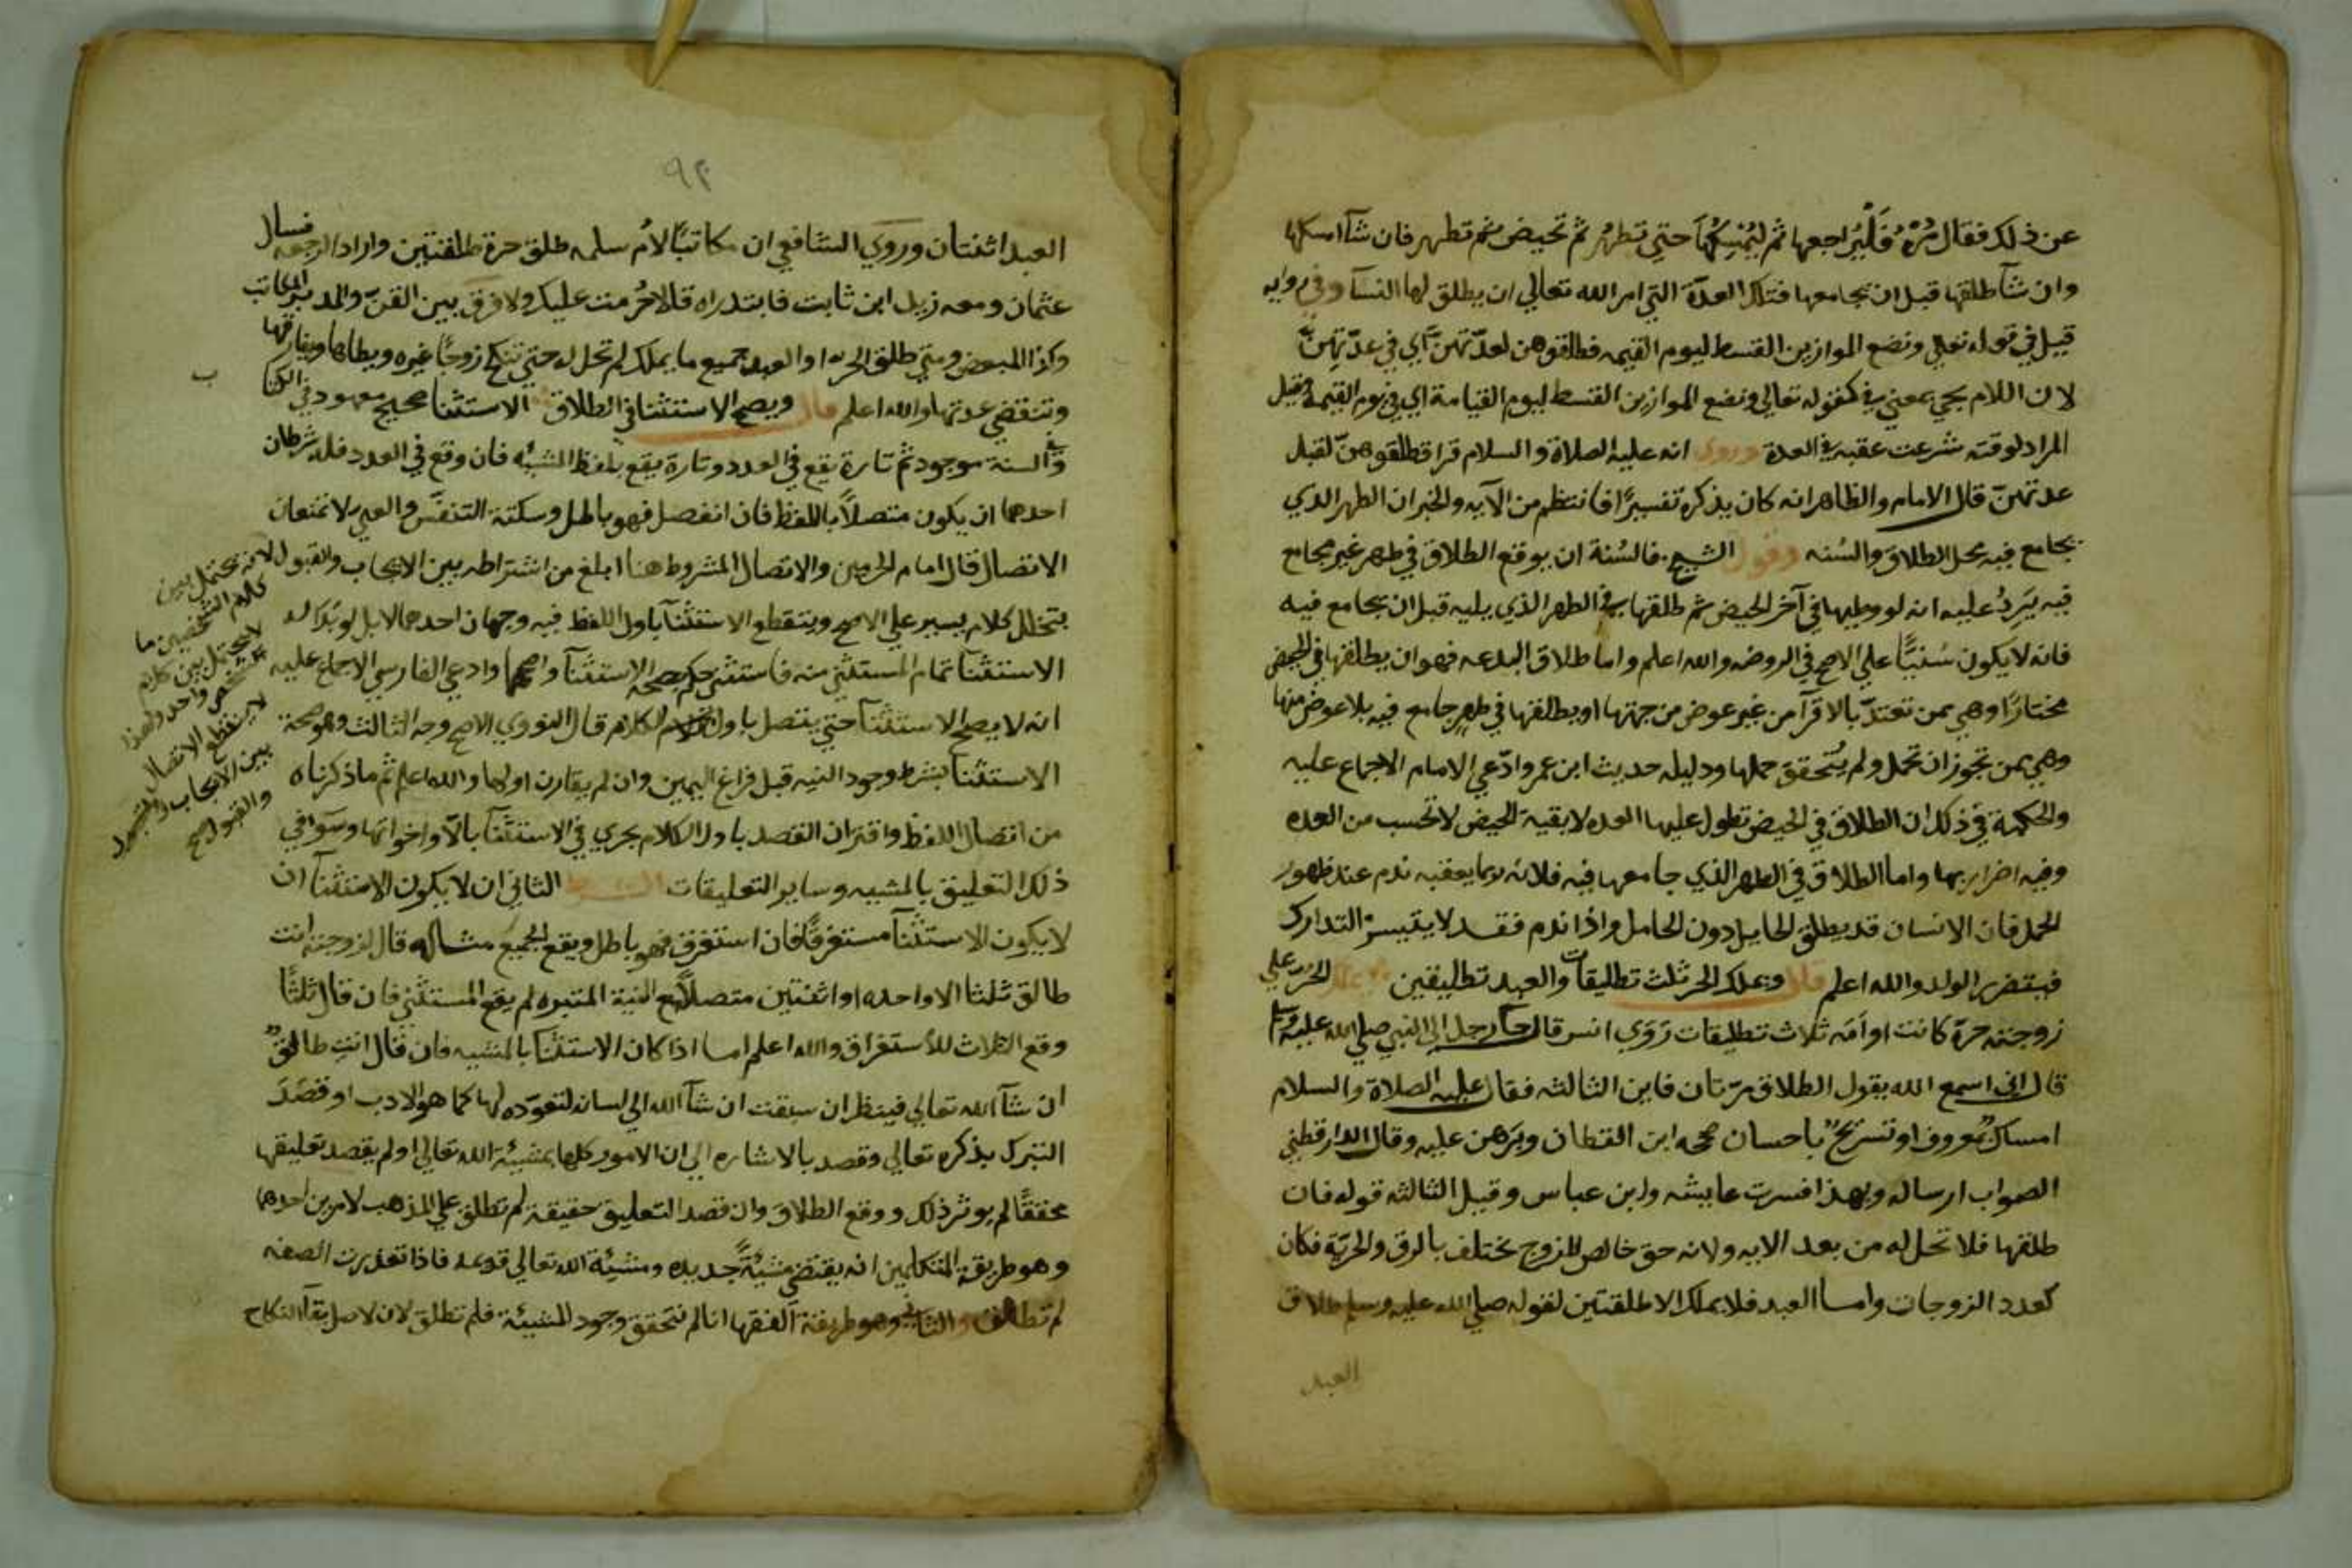 عن ذلك فقال مُرْهُ فَلْيُراجعها ثم ليُمْسِكْهَا حتي تطهُر ثم تحيض ثم تطهر فان شآ امسكها
وان شآ طلقها قبل ان يجامعها فتلك العدّة التي امر الله تعالي ان يطلق لها النسآ وفي روايه
قيل في قوله تعالي ونضع الموازين القسط ليوم القيمه فطلقوهن لعدّتهنّ اي في عدّتهنّ
لان اللام يجي بمعني في كقوله تعالي ونضع الموازين القسط ليوم القيامة اي في يوم القيمة وقيل
المراد لوقت شرعت عقبه في العدة وروي انه عليه الصلاة والسلام قرا فطلقوهنّ لقبل
عدتهنّ قال الامام والظاهر انه كان يذكره تفسيرًا فانتظم من الآيه والخبر ان الطهر الذي
يجامع فيه محل الطلاق والسُنه وقول الشيخ فالسُنة ان يوقع الطلاق في طهر غير مجامع
فيه يَرِدُ عليه انه لو وطيها في آخر الحيض ثم طلقها في الطهر الذي يليه قبل ان يجامع فيه
فانه لا يكون سُنيًّا علي الاصح في الروضه والله اعلم واما طلاق البدعه فهو ان يطلقها في الحيض
مختارًا وهي ممن تعتدّ بالاقرآ من غير عوض من جهتها او يطلقها في طهرٍ جامع فيه بلا عوض منها
وهي ممن تجوز ان تحمل ولم يُتحقق حملها ودليله حديث ابن عمر وادّعي الامام الاجماع عليه
والحكمة في ذلك ان الطلاق في الحيض تطول عليها العده لا بقية الحيض لا تحسب من العده
وفيه اضرار بها واما الطلاق في الطهر الذي جامعها فيه فلانه ربما يعقبه ندم عند ظهور
الحمل فان الانسان قد يطلق الحايل دون الحامل واذا ندم فقد لا يتيسر التدارك
فيتضرر الولد والله اعلم قال ويملك الحر ثلث تطليقات والعبد تطليقتين يملك الحر علي
زوجته حرة كانت او اَمَه ثلاث تطليقات رَوَي انس قال جآ رجل الي النبي صلي الله عليه وسلم
قال اني اسمع الله يقول الطلاق مرّتان فاين الثالثه فقال عليه الصلاة والسلام
امساكٌ بمعروف او تسريحٌ باحسان صححه ابن القطان وبَرهن عليه وقال الدارقطني
الصواب ارساله وبهذا فسرت عايشه وابن عباس وقيل الثالثه قوله فان
طلقها فلا تحل له من بعد الايه ولانه حق خالص للزوج يختلف بالرق والحريّة فكان
كعدد الزوجات وامسا العبد فلا يملك الا طلقتين لقوله صلي الله عليه وسلم طلاق
العبد
٩٢
العبد اثنتان وروي الشافعي ان مكاتبًا لامُ سلمه طلق حرة طلقتين واراد الرجعه فسال
عثمان ومعه زيد ابن ثابت فابتدراه قالا حرُمت عليك ولا فرق بين القنّ والمدبر والمكاتب
وكذا المبعض ومتي طلق الحر او العبد جميع ما يملك لم تحل له حتي تنكح زوجًا غيره ويطاها ويفارقها
وتنقضي عدتها والله اعلم قال ويصح الاستثنا في الطلاق الاستثنا صحيح معهود في الكتا
ب
والسنة موجود ثم تارة يقع في العدد وتارة يقع بلفظ المشيّه فان وقع في العدد فله شرطان
احدهما ان يكون متصلاً باللفظ فان انفصل فهو باطل وسكتة التنفّس والعي لا تمنعان
الاتصال قال امام الحرمين والاتصال المشروط هنا ابلغ من اشتراطه بين الايجاب والقبول لانه يحتمل بين
كلام الشخصين ما
لا يحتمل بين كلام
شخص واحد ولهذا
لا ينقطع الاتصال
بين الايجاب
والقبول صح
يتخلل كلام يسير علي الاصح وينقطع الاستثنآ باول اللفظ فيه وجهان احدهما لا بل لو بَدَا له
الاستثنآ تمام المستثني منه فاستثني حكم بصحة الاستثنآ واصحها وادعي الفارسي الاجماع عليه
انه لا يصح الاستثنآ حتي يتصل باول الكلام قال النووي الاصح وجه الثالث وهو صحة
الاستثنآ بشرط وجود النيه قبل فراغ اليمين وان لم يقارن اولها والله اعلم ثم ما ذكرناه
من اتصال اللفظ واقتران القصد باول الكلام يجري في الاستثنآ بالّا واخواتها وسَوا في
ذلك التعليق بالمشيه وساير التعليقات الشرط الثاني ان لا يكون الاستثنآ ان
لا يكون الاستثنآ مستغرقًا فان استغرق فهو باطل ويقع الجميع مثاله قال لزوجته انت
طالق ثلثا الا واحده او اثنتين متصلاً مع النية المعتبره لم يقع المستثني فان قال ثلثًا
وقع الثلاث للاستغراق والله اعلم امسا اذا كان الاستثنآ بالمشيه فان قال انتِ طالقٌ
ان شآ الله تعالي فينظر ان سبقت ان شآ الله الي لسانه لتعوّده لها كما هو الادب او قصَدَ
التبرك بذكره تعالي وقصد بالاشاره الي ان الامور كلها بمشيئة الله تعالي او لم يقصد تعليقها
محققًا لم يوثر ذلك ووقع الطلاق وان قصد التعليق حقيقة لم تطلق علي المذهب لامرين احدهما
وهو طريقة المتكلمين انه يقتضي مشيّةً جديده ومشيّة الله تعالي قديمه فاذا تعذرت الصفه
لم تطلق والثاني وهو طريقة الفقها انا لم نتحقق وجود المشيئة فلم تطلق لان لاصل بقآ النكاح